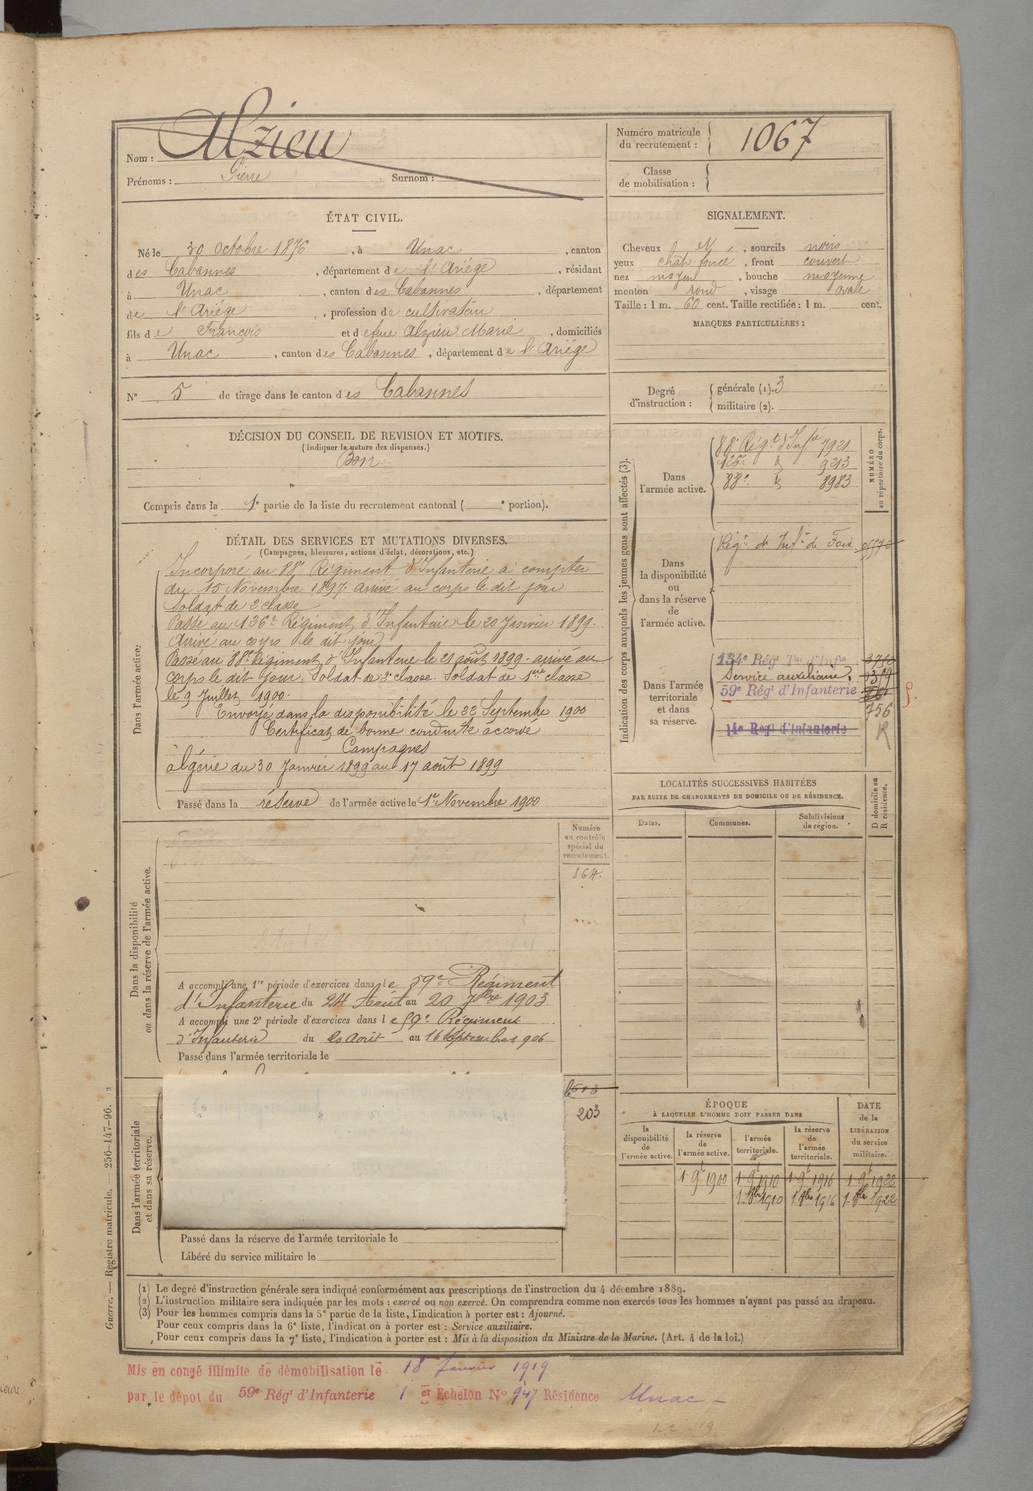 Nom : Alzieu
Prénoms : Pierre Surnom :
Numéro matricule du recrutement : 1067
Classe de mobilisation :
ÉTAT CIVIL.
Né le 30 Octobre 1876, à Unac, canton
des Cabannes, département de l'Ariége, résidant
à Unac, canton des Cabannes, département
de l'Ariége, profession de cultivateur
fils de François et de feue Alzieu Marie, domiciliés
à Unac, canton des Cabannes, département de l'Ariége
N° 5 de tirage dans le canton des Cabannes
SIGNALEMENT.
Cheveux , sourcils noirs
yeux chat foncé, front couvert
nez moyen, bouche moyenne
menton rond, visage ovale
Taille : 1 m. 60 cent. Taille rectifiée : 1 m. cent.
MARQUES PARTICULIÈRES :
Degré d'instruction : générale (1). 3
militaire (2).
DÉCISION DU CONSEIL DE REVISION ET MOTIFS.
(Indiquer la nature des dispenses.)
Bon
Compris dans la 1e partie de la liste du recrutement cantonal ( e portion).
DÉTAIL DES SERVICES ET MUTATIONS DIVERSES.
(Campagnes, blessures, actions d'éclat, décorations, etc.)
Dans l'armée active.
Incorporé au 88e Régiment d'Infanterie à compter
du 15 Novembre 1897 arrivé au corps le dit jour
Soldat de 2e classe
Passé au 126e Régiment d'Infanterie le 20 Janvier 1899
Arrivé au corps le dit jour
Passé au 88e Régiment d'Infanterie le 21 août 1899 arrivé au
corps le dit jour. Soldat de 2e classe. Soldat de 1ère classe
le 9 Juillet 1900.
Envoyé dans la disponibilité le 22 Septembre 1900
Certificat de bonne conduite accordé
Campagnes
algérie du 30 Janvier 1899 au 17 août 1899
Passé dans la réserve de l'armée active le 1er Novembre 1900
Indication des corps auxquels les jeunes gens sont affectés (3).
NUMÉRO au répertoire du corps.
Dans l'armée active.
88e Régt d'Infie 7921
126e d° 9213
88e d° 8983
Dans la disponibilité ou dans la réserve de l'armée active.
Régt de Infie de Foix
Dans l'armée territoriale et dans sa réserve.
134e Régt Ter d'Infie
Service auxiliaire.
59e Régt d'Infanterie
756
14e Régt d'Infanterie R
LOCALITÉS SUCCESSIVES HABITÉES
PAR SUITE DE CHANGEMENTS DE DOMICILE OU DE RÉSIDENCE.
Dates. Communes. Subdivisions de région. D domicile ou R résidence.
Dans la disponibilité ou dans la réserve de l'armée active.
Numéro au contrôle spécial du recrutement.
864.
A accompli une 1re période d'exercices dans le 59e Régiment
d'Infanterie du 24 Août au 20 7bre 1903
A accompli une 2e période d'exercices dans le 59e Régiment
d'Infanterie du 20 Août au 16 Septembre 1906
Passé dans l'armée territoriale le
Dans l'armée territoriale et dans sa réserve.
203
Passé dans la réserve de l'armée territoriale le
Libéré du service militaire le
ÉPOQUE
À LAQUELLE L'HOMME DOIT PASSER DANS
la disponibilité de l'armée active. la réserve de l'armée active. l'armée territoriale. la réserve de l'armée territoriale. DATE de la LIBÉRATION du service militaire.
1 9bre 1900 1 9bre 1910 1 9bre 1916 1 9bre 1922
1 8bre 1910 1 8bre 1916 1 8bre 1922
(1) Le degré d'instruction générale sera indiqué conformément aux prescriptions de l'instruction du 4 décembre 1889.
(2) L'instruction militaire sera indiquée par les mots : exercé ou non exercé. On comprendra comme non exercés tous les hommes n'ayant pas passé au drapeau.
(3) Pour les hommes compris dans la 5e partie de la liste, l'indication à porter est : Ajourné.
Pour ceux compris dans la 6e liste, l'indication à porter est : Service auxiliaire.
Pour ceux compris dans la 7e liste, l'indication à porter est : Mis à la disposition du Ministre de la Marine. (Art. 4 de la loi.)
Guerre. — Registre matricule. — 256-147-96.
Mis en congé illimité de démobilisation le 18 Janvier 1919
par le dépôt du 59e Régt d'Infanterie 1er Echelon N° 947 Résidence Unac